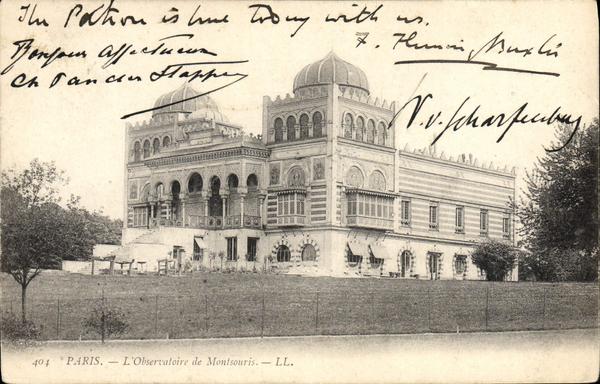 The Python is here today with us.
Bonjour affectueux
Ch van der Stappen
V. v. Scharfenberg
404 PARIS. — L'Observatoire de Montsouris. — LL.